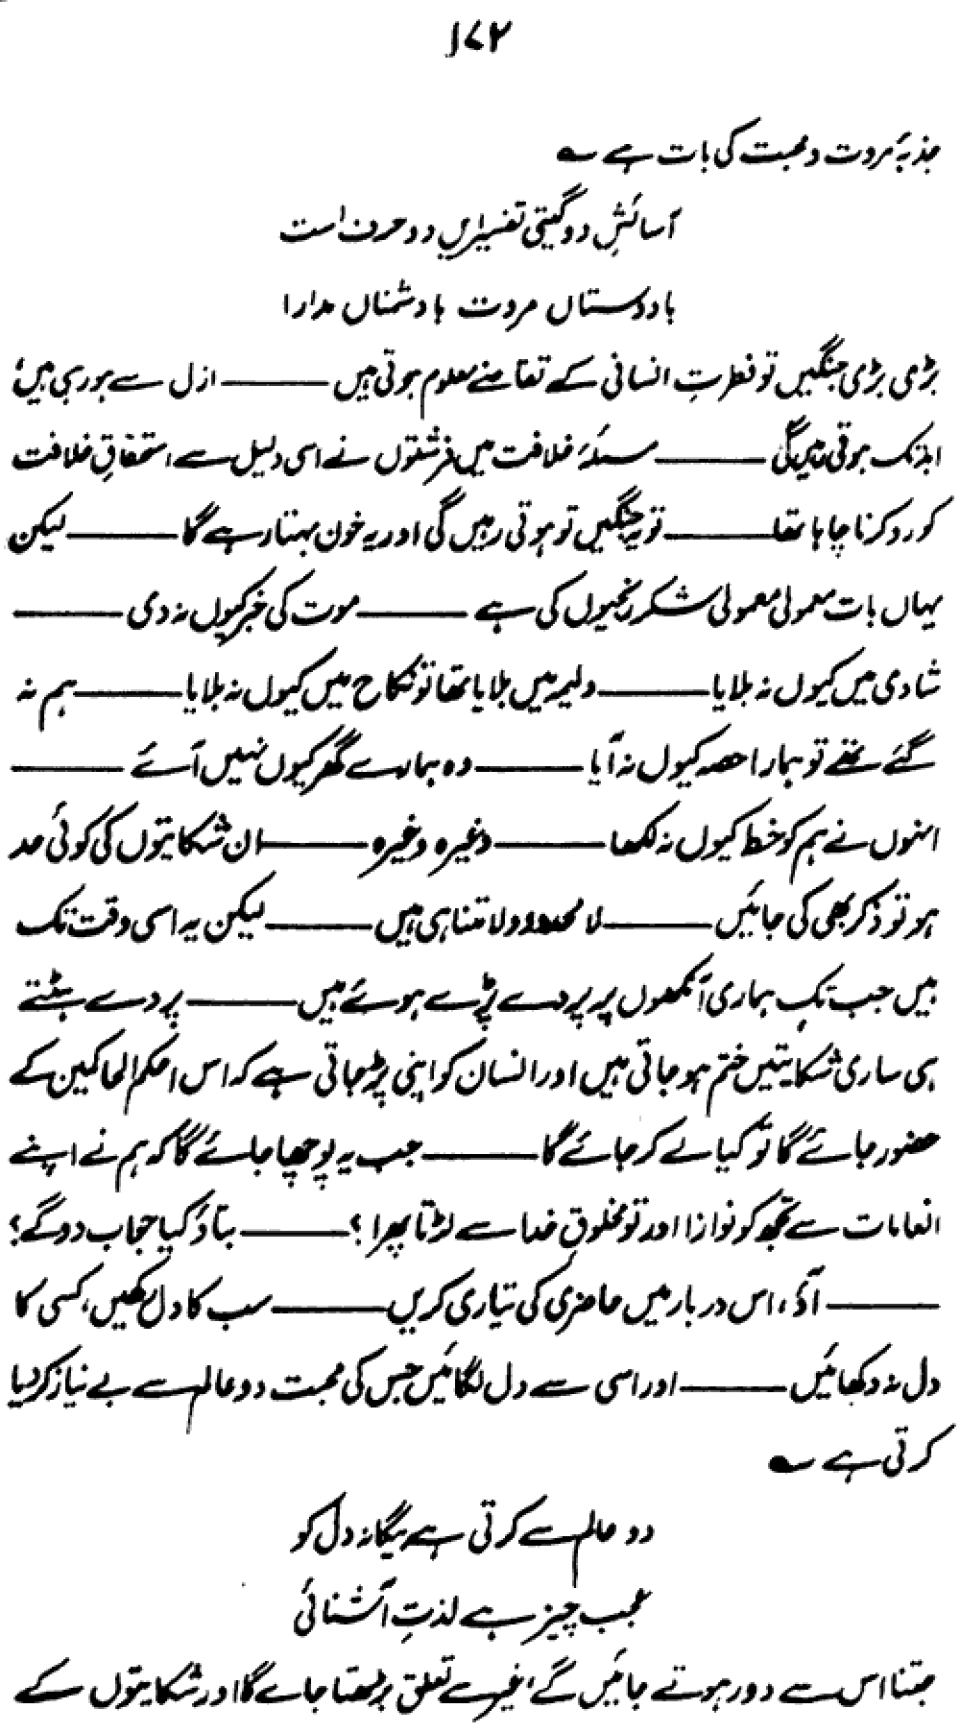 ۱۷۲
جذبۂ مروت و محبت کی بات ہے ؎
آسائشِ دو گیتی تفسیر ایں دو حرف است
با دوستاں مروت با دشمناں مدارا
بڑی بڑی جنگیں تو فطرتِ انسانی کے تقاضے معلوم ہوتی ہیں ——— ازل سے ہو رہی ہیں،
ابد تک ہوتی رہیں گی ——— مسئلۂ خلافت میں فرشتوں نے اسی دلیل سے استحقاقِ خلافت
کو رد کرنا چاہا تھا ——— تو یہ جنگیں تو ہوتی رہیں گی اور یہ خون بہتا رہے گا ——— لیکن
یہاں بات معمولی معمولی شکر رنجیوں کی ہے ——— موت کی خبر کیوں نہ دی ———
شادی میں کیوں نہ بلایا ——— ولیمہ میں بلایا تھا تو نکاح میں کیوں نہ بلایا ——— ہم نہ
گئے تھے تو ہمارا حصہ کیوں نہ آیا ——— وہ ہمارے گھر کیوں نہیں آئے ———
انہوں نے ہم کو خط کیوں نہ لکھا ——— وغیرہ وغیرہ ——— ان شکایتوں کی کوئی حد
ہو تو ذکر بھی کی جائیں ——— لا محدود و لا متناہی ہیں ——— لیکن یہ اسی وقت تک
ہیں جب تک ہماری آنکھوں پر پردے پڑے ہوئے ہیں ——— پردے ہٹتے
ہی ساری شکایتیں ختم ہو جاتی ہیں اور انسان کو اپنی پڑ جاتی ہے کہ اس احکم الحاکمین کے
حضور جائے گا تو کیا لے کر جائے گا ——— جب یہ پوچھا جائے گا کہ ہم نے اپنے
انعامات سے تجھ کو نوازا اور تو مخلوقِ خدا سے لڑتا پھرا؟ ——— بتاؤ کیا جواب دو گے؟
——— آؤ، اس دربار میں حاضری کی تیاری کریں ——— سب کا دل رکھیں، کسی کا
دل نہ دکھائیں ——— اور اسی سے دل لگائیں جس کی محبت دو عالم سے بے نیاز کر دیا
کرتی ہے ؎
دو عالم سے کرتی ہے بیگانہ دل کو
عجب چیز ہے لذتِ آشنائی
جتنا اس سے دور ہوتے جائیں گے، غیر سے تعلق بڑھتا جائے گا اور شکایتوں کے